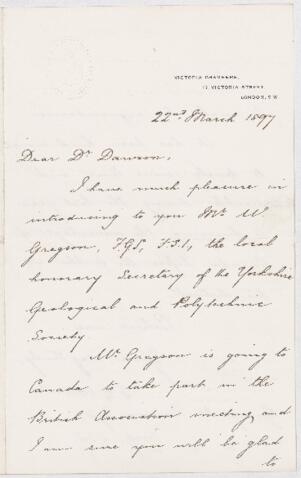 VICTORIA CHAMBERS,
17, VICTORIA STREET,
LONDON, S.W.
22nd March 1897
Dear Dr Dawson,
I have much pleasure in
introducing to you Mr W
Gregson, F.G.S, F.S.I, the local
honorary Secretary of the Yorkshire
Geological and Polytechnic
Society.
Mr Gregson is going to
Canada to take part in the
British Association meeting, and
I am sure you will be glad
to